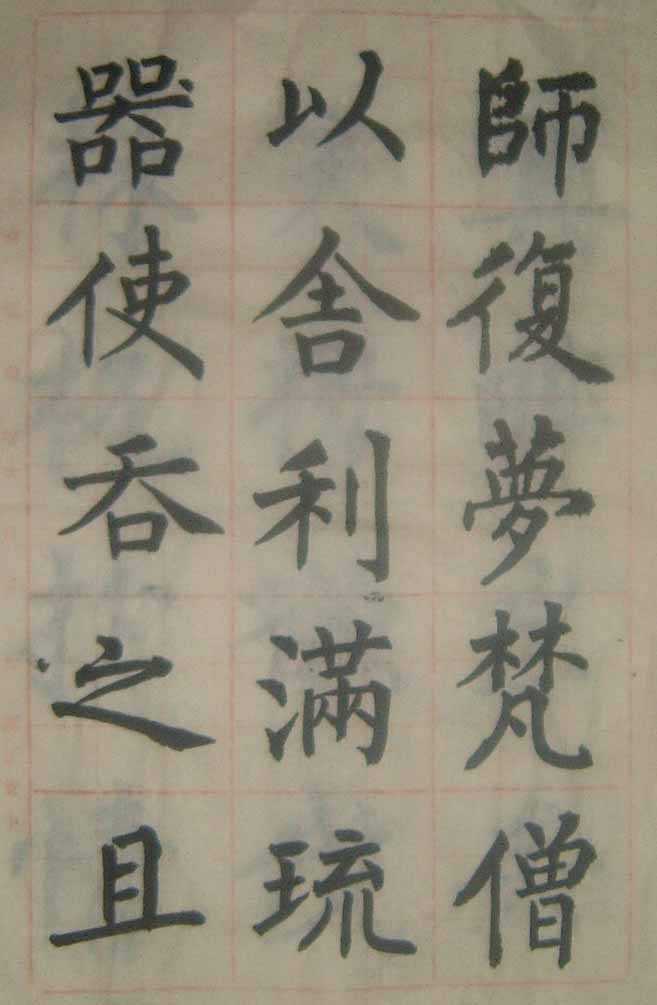 師復夢梵僧
以舍利滿琉
器使吞之且